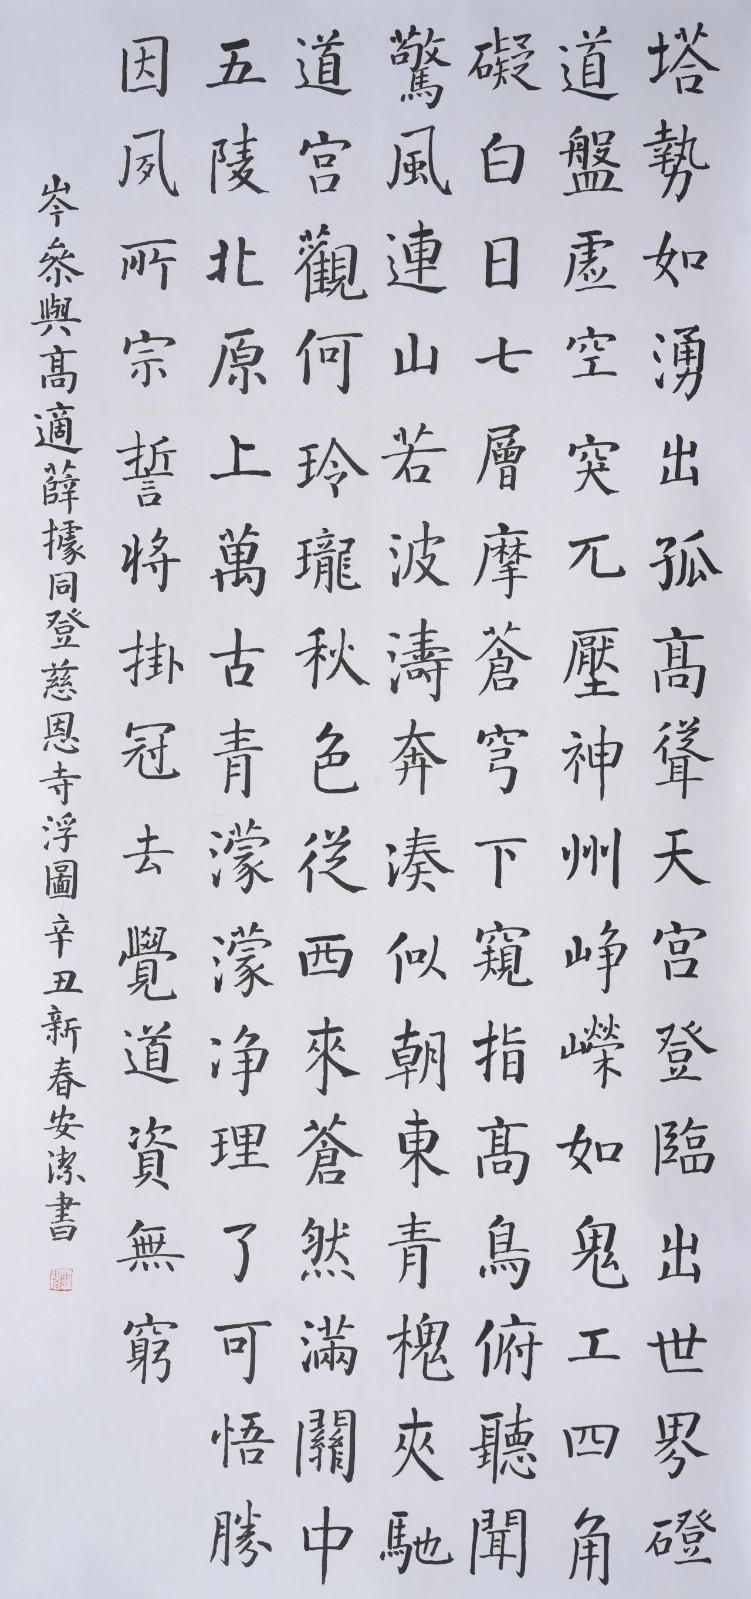 塔勢如湧出孤高聳天宮登臨出世界磴
道盤虛空突兀壓神州崢嶸如鬼工四角
礙白日七層摩蒼穹下窺指高鳥俯聽聞
驚風連山若波濤奔湊似朝東青槐夾馳
道宮觀何玲瓏秋色從西來蒼然滿關中
五陵北原上萬古青濛濛净理了可悟勝
因夙所宗誓將掛冠去覺道資無窮
岑參與高適薛據同登慈恩寺浮圖辛丑新春安潔書